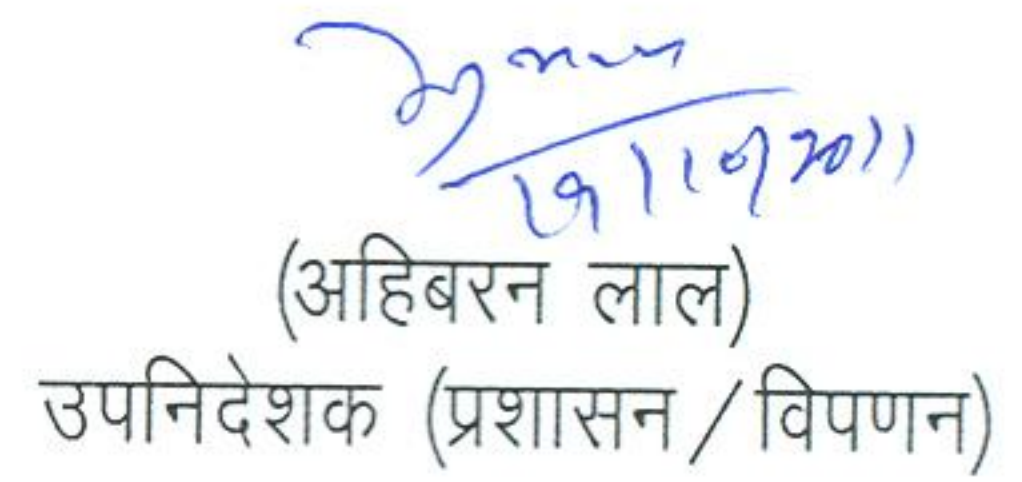 19/10/2011
(अहिबरन लाल)
उपनिदेशक (प्रशासन/विपणन)